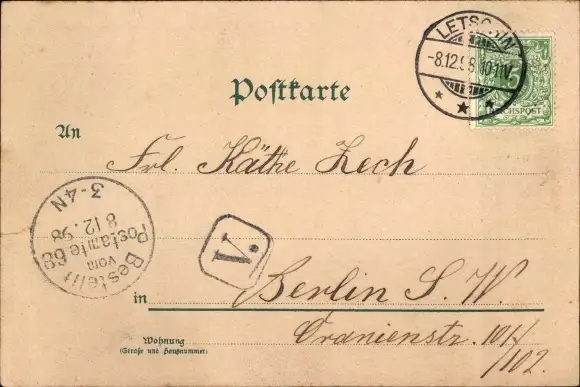 LETSCHIN
-8.12.98 10-11V.
5
REICHSPOST
Postkarte
An
Frl. Käthe Zech
Bestellt
vom
Postamte 68
8 12. 98
3-4N
V.
in Berlin S. W.
Oranienstr. 101/
/102.
Wohnung
(Straße und Hausnummer)